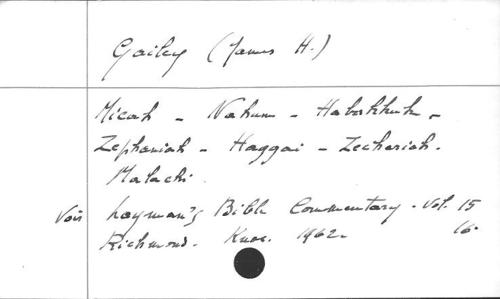 Gailey (James H.)
Micah - Nahum - Habakkuk -
Zephaniah - Haggai - Zechariah.
Malachi.
Voir Layman's Bible Commentary. Vol. 15
Richmond. Knox. 1962. 16.